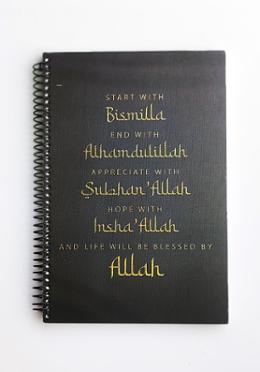 START WITH
Bismilla
END WITH
Alhamdulillah
APPRECIATE WITH
Subhan'Allah
HOPE WITH
Insha'Allah
AND LIFE WILL BE BLESSED BY
Allah